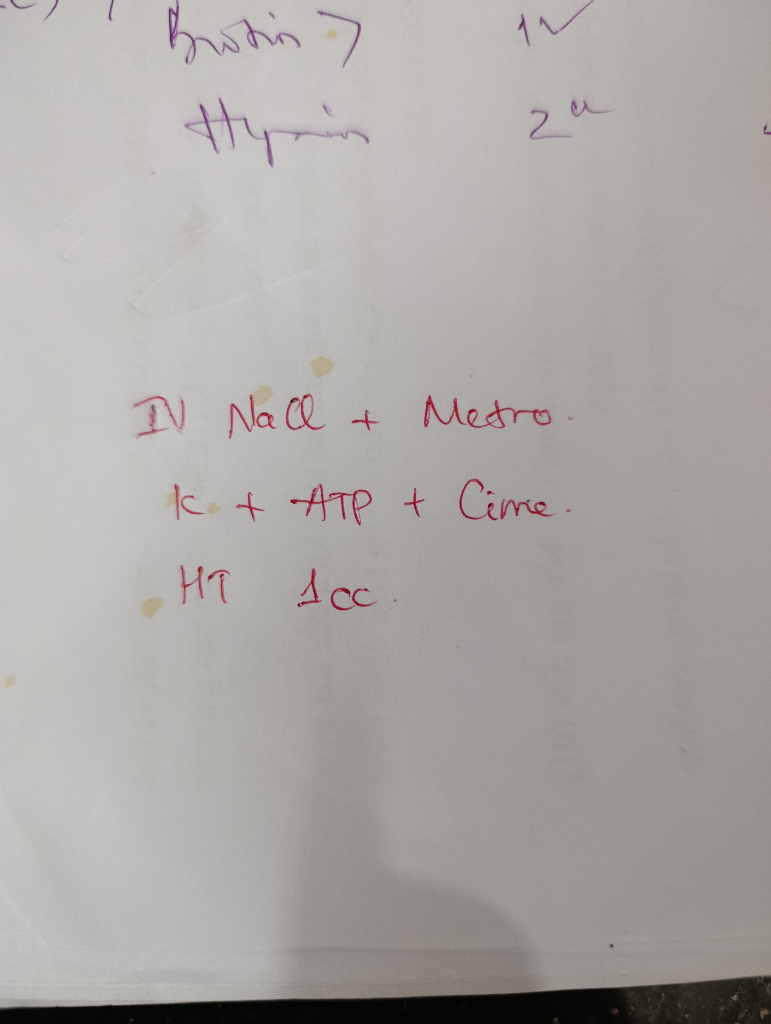 Biotin 1V
2
IV NaCl + Metro.
K + ATP + Cime.
HT 1cc.